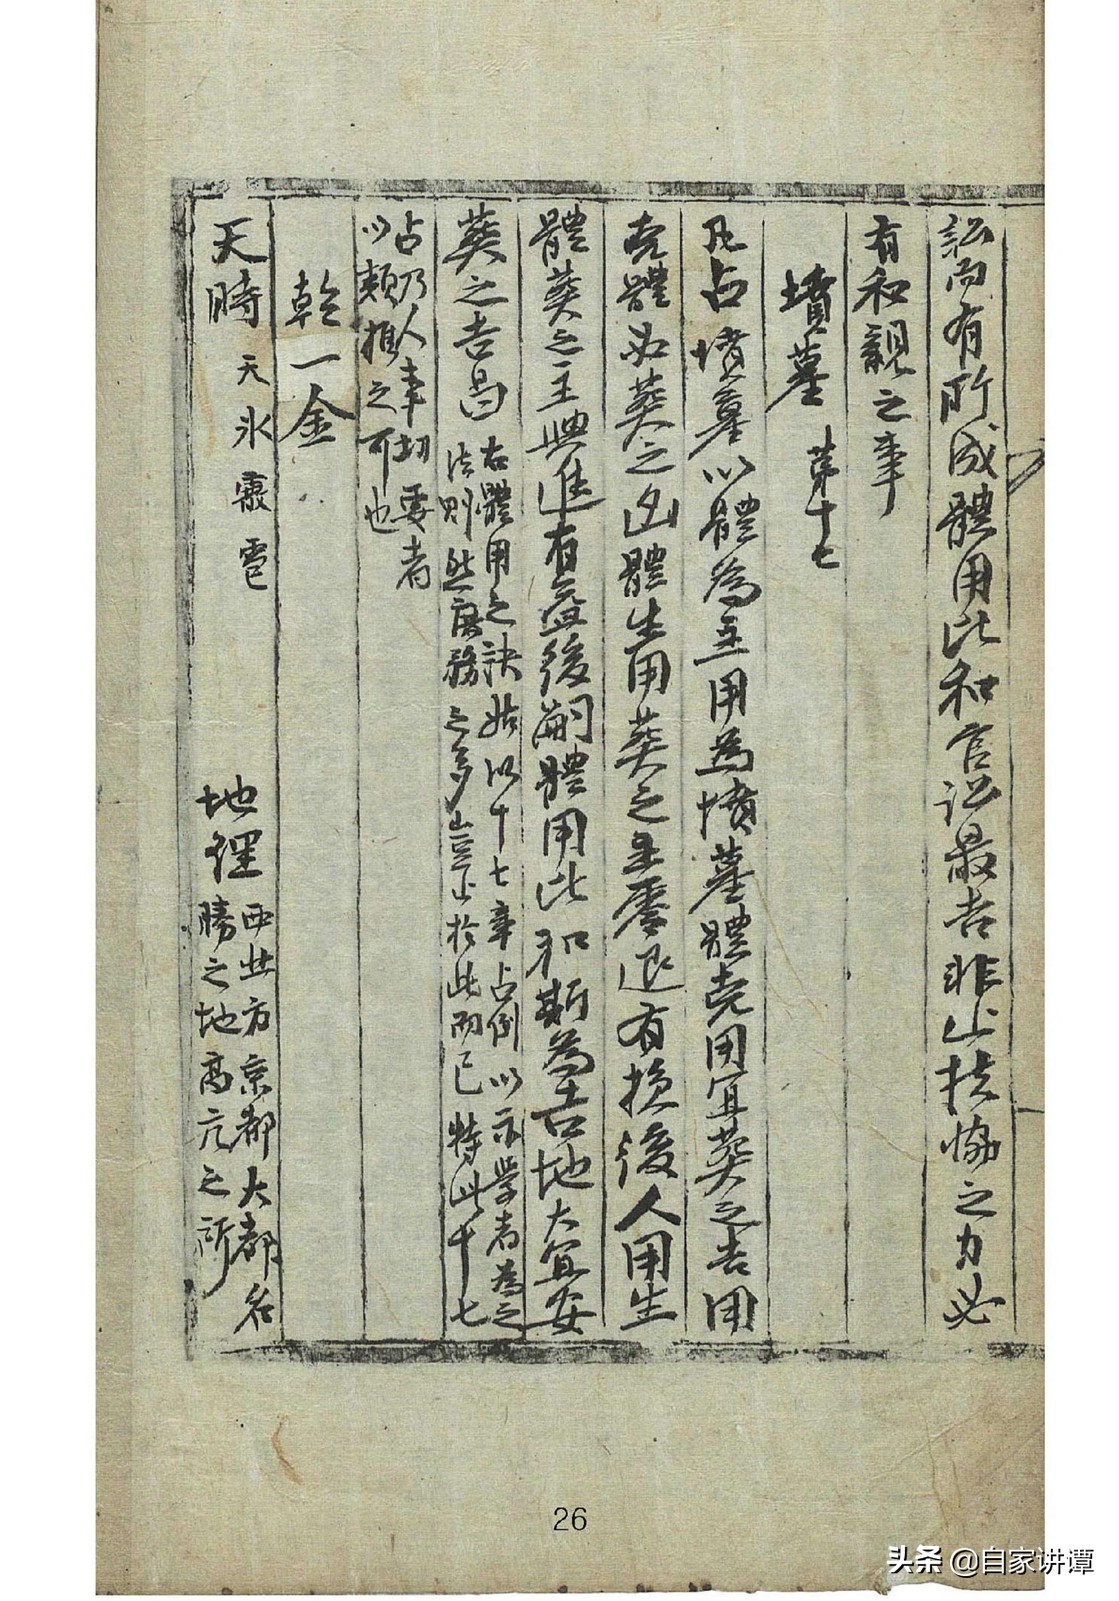 訟而有所成體用比和官訟最吉非止扶協之力必
有和親之事
墳墓 苐十七
凡占墳墓以體為主用為墳墓體克用宜葬之吉用
克體必葬之凶體生用葬之主零退有損後人用生
體葬之主興進有益後嗣體用比和斯為吉地大宜安
葬之吉昌
右體用之訣姑以十七章占例以示学者為之
法則然庶務之多豈止於此而已特此十七
占乃人事切要者
以類推之可也
乾一金
天時 天 氷 霰 雹
地理 西北方京都大都名
勝之地高亢之所
26
头条 @自家讲谭